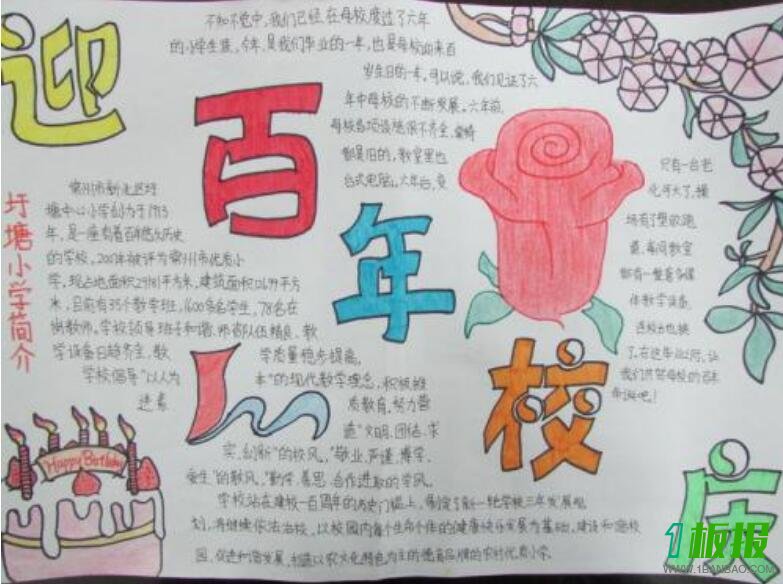 迎
百
年
校
庆
不知不觉中,我们已经在母校度过了六年
的小学生涯,今年,是我们毕业的一年,也是母校迎来百
岁生日的一年。可以说,我们见证了六
年中母校的不断发展。六年前,
母校各项设施很不齐全,桌椅
都是旧的,教室里也
只有一台老
台式电脑。六年后,变
化可大了,操
场有了塑胶跑
道,每间教室
都有一整套多媒
体教学设备,
连校台也换
了。在这年
我们共贺母校的百年
华诞吧!
圩塘小学简介
常州市新北区圩
塘中心小学创力于1913
年,是一座有着百年悠久历史
的学校,2001年被评为常州市优质小
学,现占地面积29181平方米,建筑面积
米,目前有35个教学班,1600多名学生,78名在
岗教师。学校领导班子和谐,师资队伍精良、教
学设备日趋齐全,教
学质量稳步提高。
学校倡导“以人为
本”的现代教学理念,积极推
进素
质教育,努力营
造“文明、团结、求
实、创新”的校风,“敬业、严谨、博学、
爱生”的教风,“勤学、善思、合作进取的学风。
学校站在建校一百周年的历史门槛上,制定了新一轮学校三年发展规
划,将继续依法治校,以校园内每个生命个体的健康快乐发展为基础,建设和谐校
园,促进和谐发展,创造以农文化特色为主的德育品牌的农村优质小学。
Happy Birthday
1板报
WWW.1BANBAO.COM